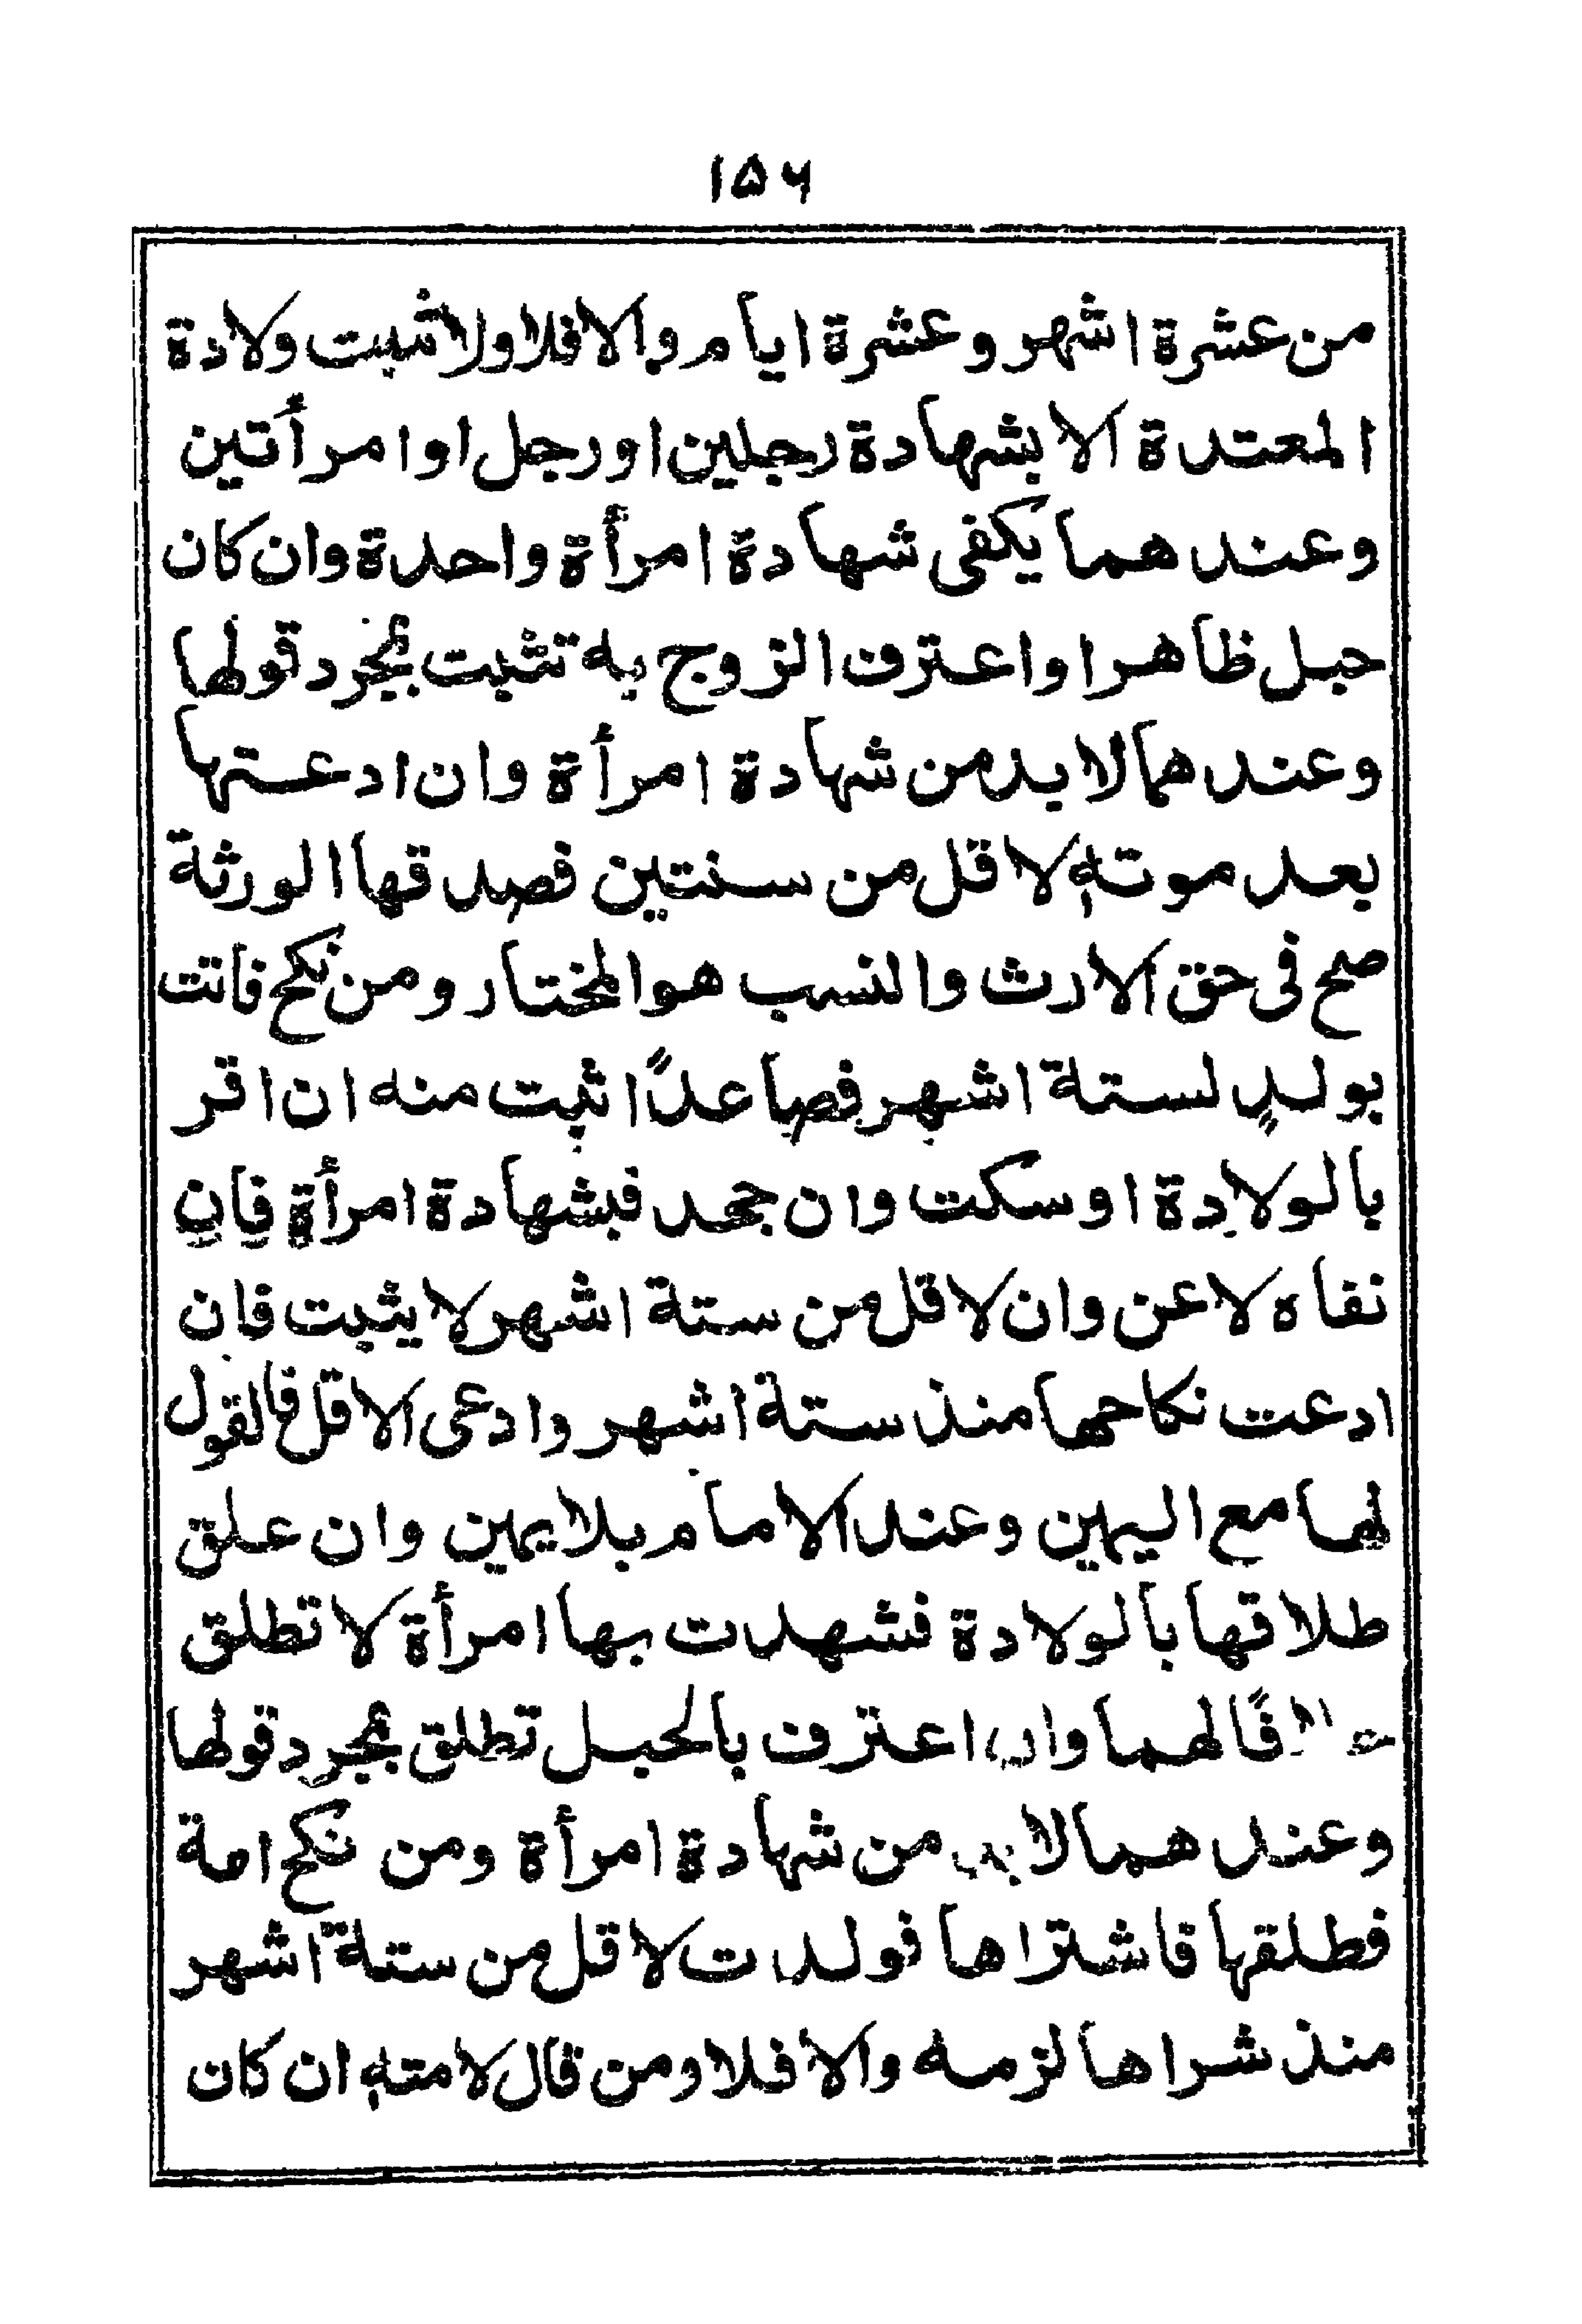 ۱۵۶
من عشرة اشهر وعشرة ايام والا فلا ولا تثبت ولادة
المعتدة الا بشهادة رجلين او رجل او امرأتين
وعند هما يكفى شهادة امرأة واحدة وان كان
حبل ظاهرا واعترف الزوج به تثبت بمجرد قولها
وعند هما لا بد من شهادة امرأة وان ادعتها
بعد موتهٖ لاقل من سنتين فصدقها الورثة
صح فى حق الارث والنسب هو المختار ومن نكح فاتت
بولدٍ لستة اشهر فصاعدًا ثبت منه ان اقر
بالولادة او سكت وان جحد فبشهادة امرأة فان
نفاه لاعن وان لاقل من ستة اشهر لا يثبت فان
ادعت نكاحها منذ ستة اشهر وادعى الاقل فالقول
لها مع اليمين وعند الامام بلا يمين وان علق
طلاقها بالولادة فشهدت بها امرأة لا تطلق
لهما وان اعترف بالحبل تطلق بمجرد قولها
وعند هما لا بد من شهادة امرأة ومن نكح امة
فطلقها فاشتراها فولدت لاقل من ستة اشهر
منذ شراها لزمه والا فلا ومن قال لامتهٖ ان كان